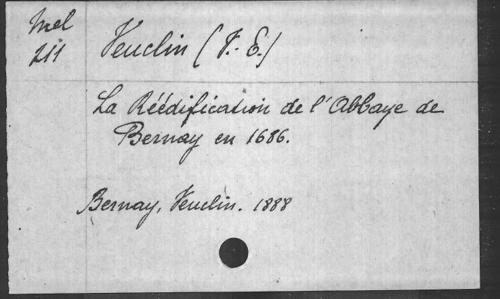 Mel
211
Veuclin (V.-E.)
La Réédification de l'Abbaye de
Bernay en 1686.
Bernay, Veuclin. 1888